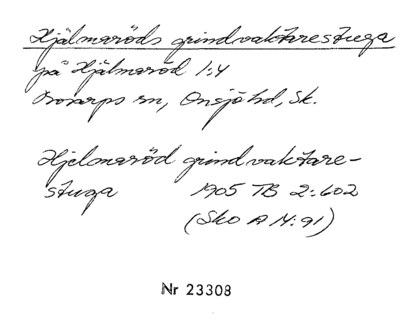 Hjälmaröds grindvaktarestuga
på Hjälmaröd 1:4
Bosarps sn, Onsjö hd, Sk.
Hjelmaröd grindvaktare-
stuga 1905 TB 2:602
(Sko A IV:91)
Nr 23308